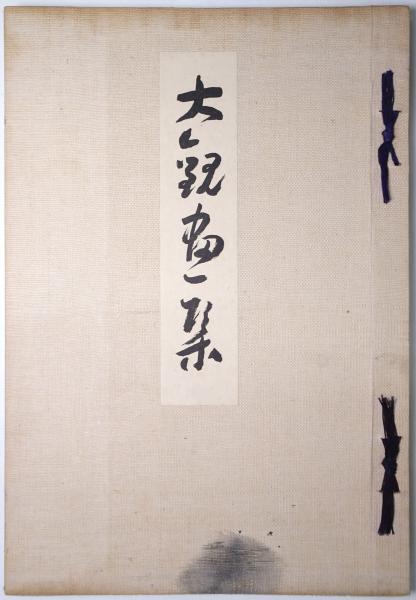 大観画集